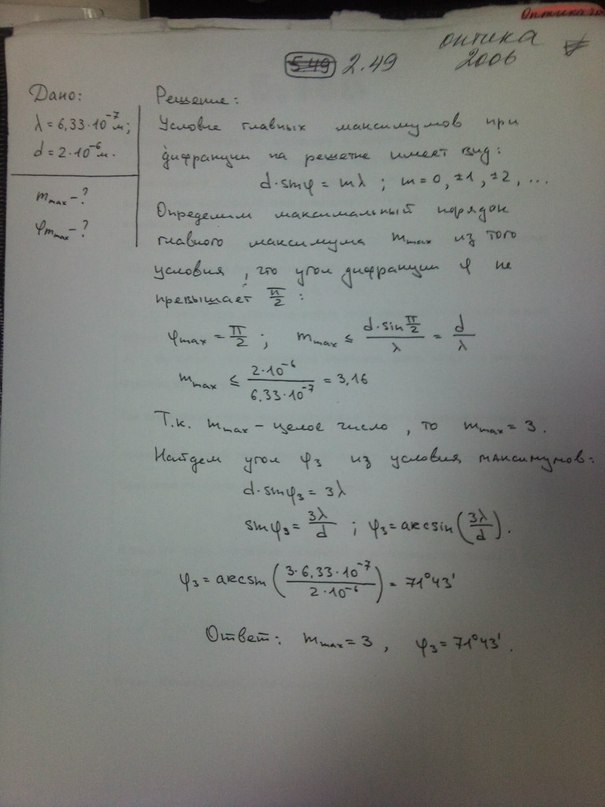 Оптика
оптика
2006
5.49 2.49
Дано:
λ = 6,33·10⁻⁷ м;
d = 2·10⁻⁶ м.
m_max - ?
φ_m_max - ?
Решение:
Условие главных максимумов при
дифракции на решетке имеет вид:
d·sinφ = mλ ; m = 0, ±1, ±2, ...
Определим максимальный порядок
главного максимума m_max из того
условия, что угол дифракции φ не
превышает π/2 :
φ_max = π/2 ; m_max ≤ d·sin π/2 / λ = d/λ
m_max ≤ 2·10⁻⁶ / 6,33·10⁻⁷ = 3,16
Т.к. m_max - целое число, то m_max = 3.
Найдем угол φ₃ из условия максимумов:
d·sinφ₃ = 3λ
sinφ₃ = 3λ/d ; φ₃ = arcsin(3λ/d).
φ₃ = arcsin(3·6,33·10⁻⁷ / 2·10⁻⁶) = 71°43'
Ответ: m_max = 3, φ₃ = 71°43'.